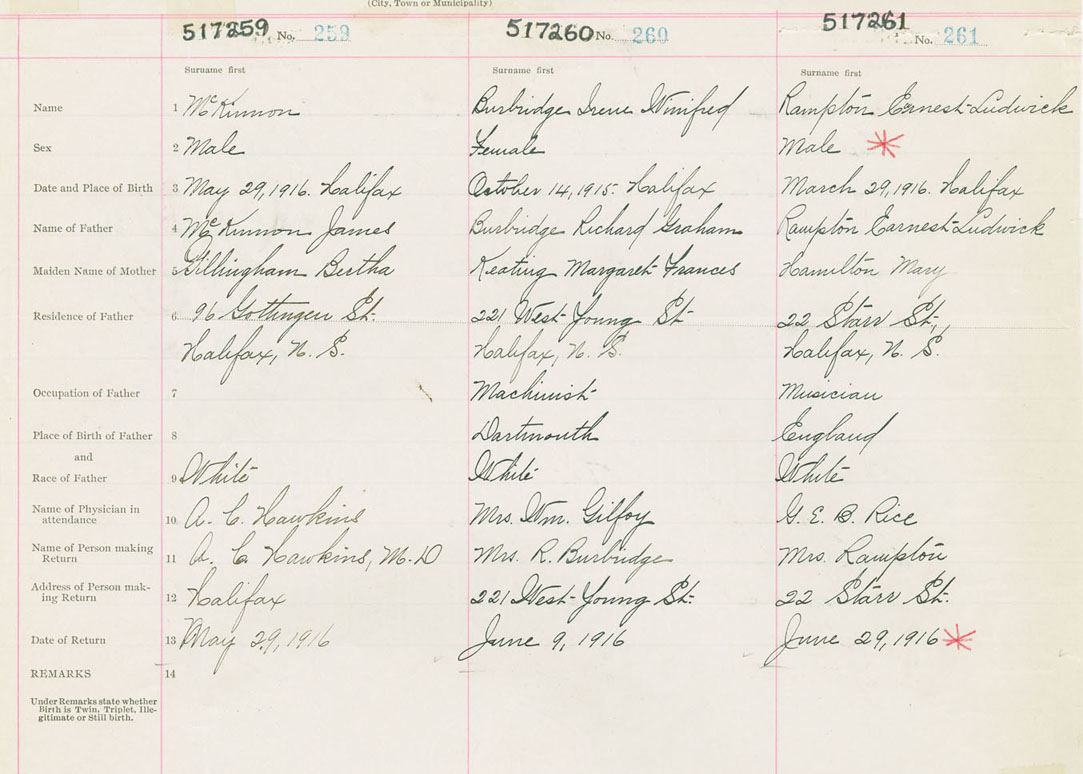 (City, Town or Municipality)
517259 No. 259 517260 No. 260 517261 No. 261
Surname first Surname first Surname first
Name 1 McKinnon Burbridge Irene Winifred Rampton Ernest Ludwick
Sex 2 Male Female Male *
Date and Place of Birth 3 May 29, 1916. Halifax October 14, 1915. Halifax March 29, 1916. Halifax
Name of Father 4 McKinnon James Burbridge Richard Graham Rampton Earnest Ludwick
Maiden Name of Mother 5 Gillingham Bertha Keating Margaret Frances Hamilton Mary
Residence of Father 6 96 Gottingen St. 221 West Young St. 22 Starr St.,
Halifax, N. S. Halifax, N. S. Halifax, N. S.
Occupation of Father 7 Machinist Musician
Place of Birth of Father 8 Dartmouth England
and
Race of Father 9 White White White
Name of Physician in
attendance 10 A. C. Hawkins Mrs. Wm. Gilfoy G. E. B. Rice
Name of Person making
Return 11 A. C. Hawkins, M.D Mrs. R. Burbridge Mrs. Rampton
Address of Person mak-
ing Return 12 Halifax 221 West Young St. 22 Starr St.
Date of Return 13 May 29, 1916 June 9, 1916 June 29, 1916 *
REMARKS 14
Under Remarks state whether
Birth is Twin, Triplet, Ille-
gitimate or Still birth.